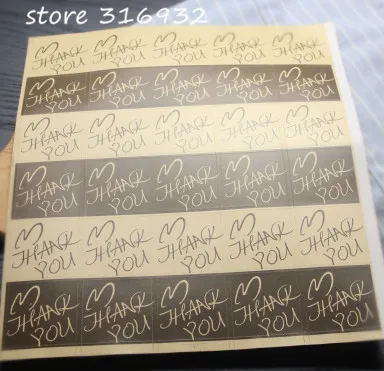 store 316932
THANK THANK THANK THANK THANK
YOU YOU YOU YOU YOU
THANK THANK THANK THANK THANK
YOU YOU YOU YOU YOU
THANK THANK THANK THANK THANK
YOU YOU YOU YOU YOU
THANK THANK THANK THANK THANK
YOU YOU YOU YOU YOU
THANK THANK THANK THANK THANK
YOU YOU YOU YOU YOU
THANK THANK THANK THANK THANK
YOU YOU YOU YOU YOU